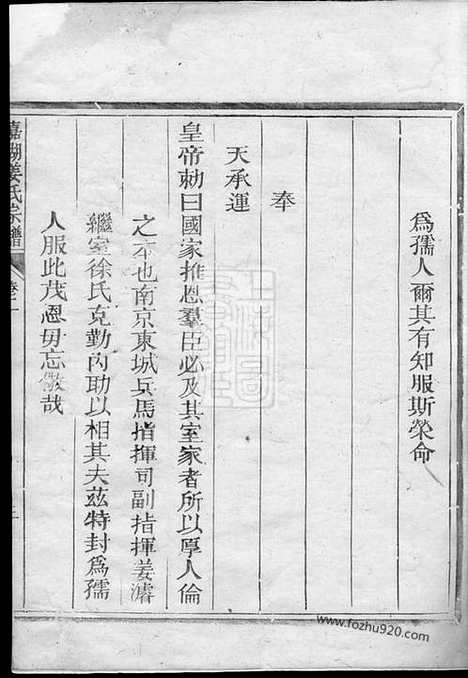 為孺人爾其有知服斯榮命
奉
天承運
皇帝勅曰國家推恩羣臣必及其室家者所以厚人倫
之本也南京東城兵馬指揮司副指揮姜濬
繼室徐氏克勤內助以相其夫茲特封為孺
人服此茂恩毋忘儆哉
姜氏宗譜
www.fozhu920.com